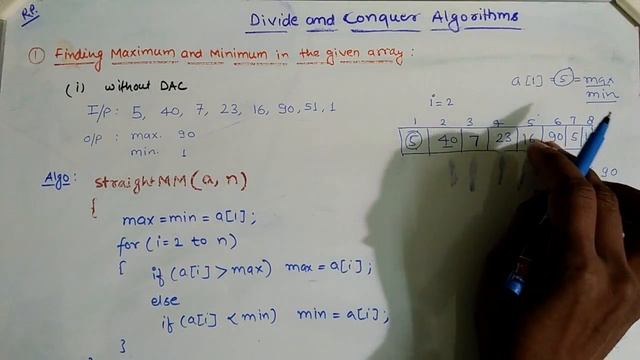 R.P.
Divide and Conquer Algorithms
① Finding Maximum and Minimum in the given array :
(i) without DAC
I/P : 5, 40, 7, 23, 16, 90, 51, 1
O/P : max. 90
min. 1
Algo : straightMM(a, n)
{
max = min = a[1];
for (i = 2 to n)
{ if (a[i] > max) max = a[i];
else
if (a[i] < min) min = a[i];
}
a[1] = 5 = max
min
i = 2
1 2 3 4 5 6 7 8
5 40 7 23 16 90 5
90